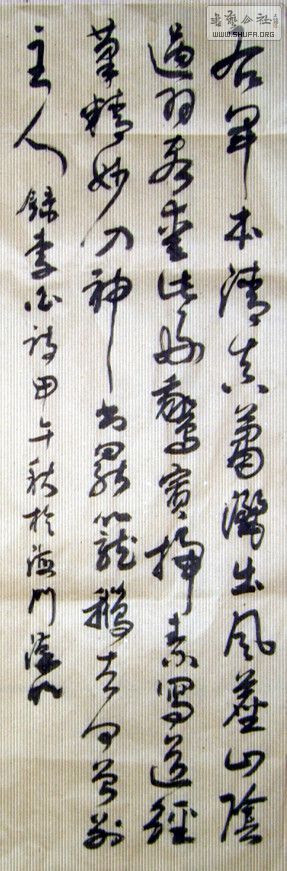 右軍本清真蕭灑出風塵山陰
過羽客愛此好鵞賓掃素寫道經
筆精妙入神書罷籠鵝去何曾別
主人 錄李白詩甲午秋於海門
WWW.SHUFA.ORG